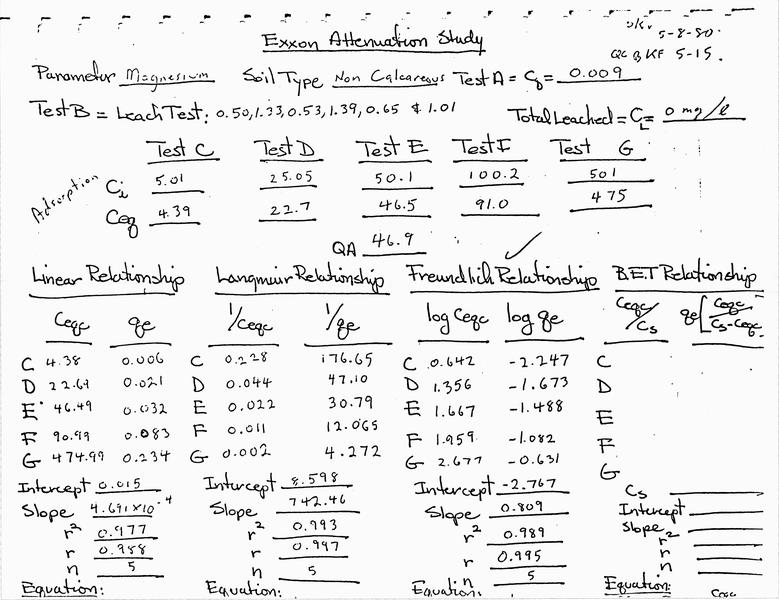 5-8-80.
Exxon Attenuation Study
QC By KF 5-15.
Parameter Magnesium Soil Type Non Calcareous Test A = Cb = 0.009
Test B = Leach Test: 0.50, 1.33, 0.53, 1.39, 0.65 & 1.01 Total Leached = CL = 0 mg/l
Test C Test D Test E Test F Test G
Adsorption
Ci 5.01 25.05 50.1 100.2 501
Ceq 4.39 22.7 46.5 91.0 475
QA 46.9
Linear Relationship Langmuir Relationship Freundlich Relationship BET Relationship
Ceqc qe 1/Ceqc 1/qe log Ceqc log qe Ceqc/Cs qe[Ceqc/Cs-Ceqc
C 4.38 0.006 C 0.228 176.65 C 0.642 -2.247 C
D 22.69 0.021 D 0.044 47.10 D 1.356 -1.673 D
E 46.49 0.032 E 0.022 30.79 E 1.667 -1.488 E
F 90.99 0.083 F 0.011 12.065 F 1.959 -1.082 F
G 474.99 0.234 G 0.002 4.272 G 2.677 -0.631 G
Intercept 0.015 Intercept 8.598 Intercept -2.767 Cs
Slope 4.691x10-4 Slope 742.46 Slope 0.809 Intercept
r2 0.977 r2 0.993 r2 0.989 Slope
r 0.988 r 0.997 r 0.995 r2
n 5 n 5 n 5 r
n
Equation: Equation: Equation: Equation:
Ceqc